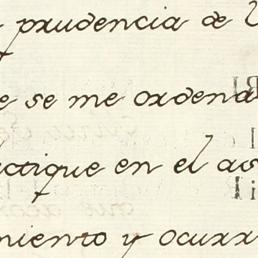 prudencia de
e se me ordena
actique en el as
miento y ocurr